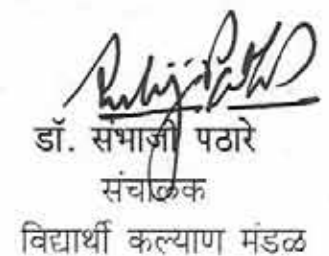 डॉ. संभाजी पठारे
संचालक
विद्यार्थी कल्याण मंडळ